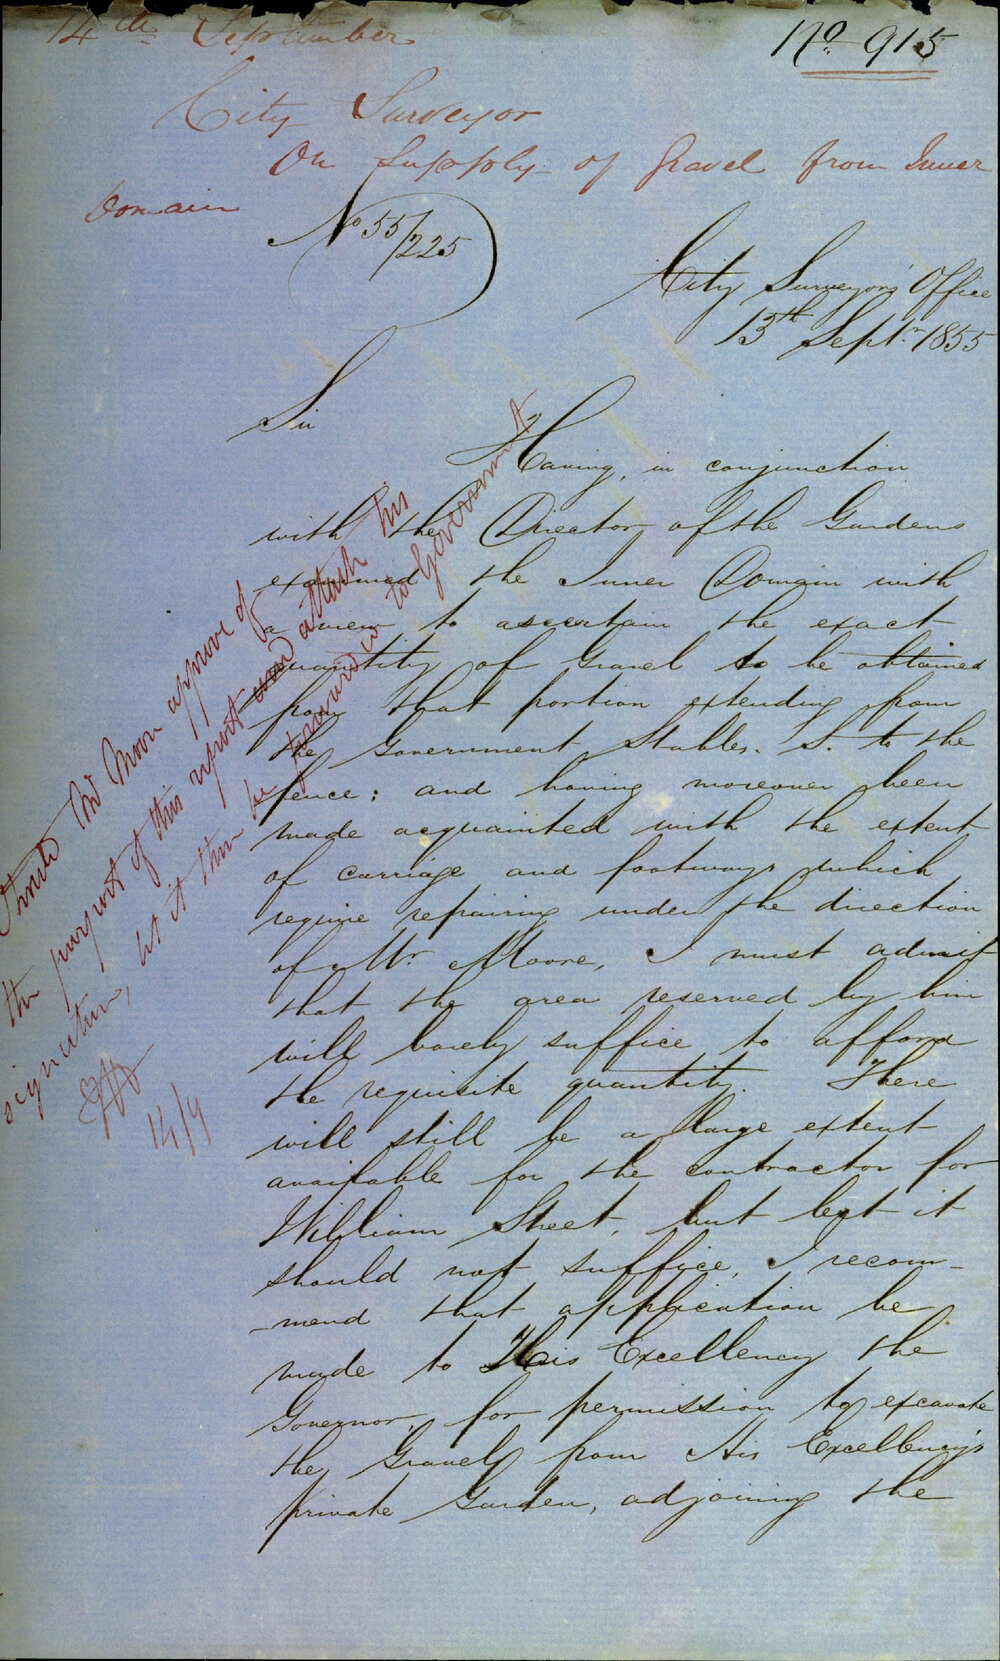 14th September
No 915
City Surveyor
On Supply of Gravel from Inner
Domain
No 55/225
City Surveyors Office
13th Septr. 1855
Sir
Having, in conjunction
with the Director of the Gardens
examined the Inner Domain with
a view to ascertain the exact
quantity of Gravel to be obtained
from that portion extending from
the Government Stables. S. to the
fence; and having moreover been
made acquainted with the extent
of carriage and footways which
require repairing under the direction
of Mr. Moore, I must admit
that the area reserved by him
will barely suffice to afford
the requisite quantity. There
will still be a large extent
available for the contractor for
William Street, but lest it
should not suffice, I recom-
-mend that application be
made to His Excellency the
Governor, for permission to excavate
the Gravel from His Excellency's
private Garden, adjoining the
Should Mr Moon approve of
the purport of this report and attach his
signature, let it then be forwarded to Government
14/9